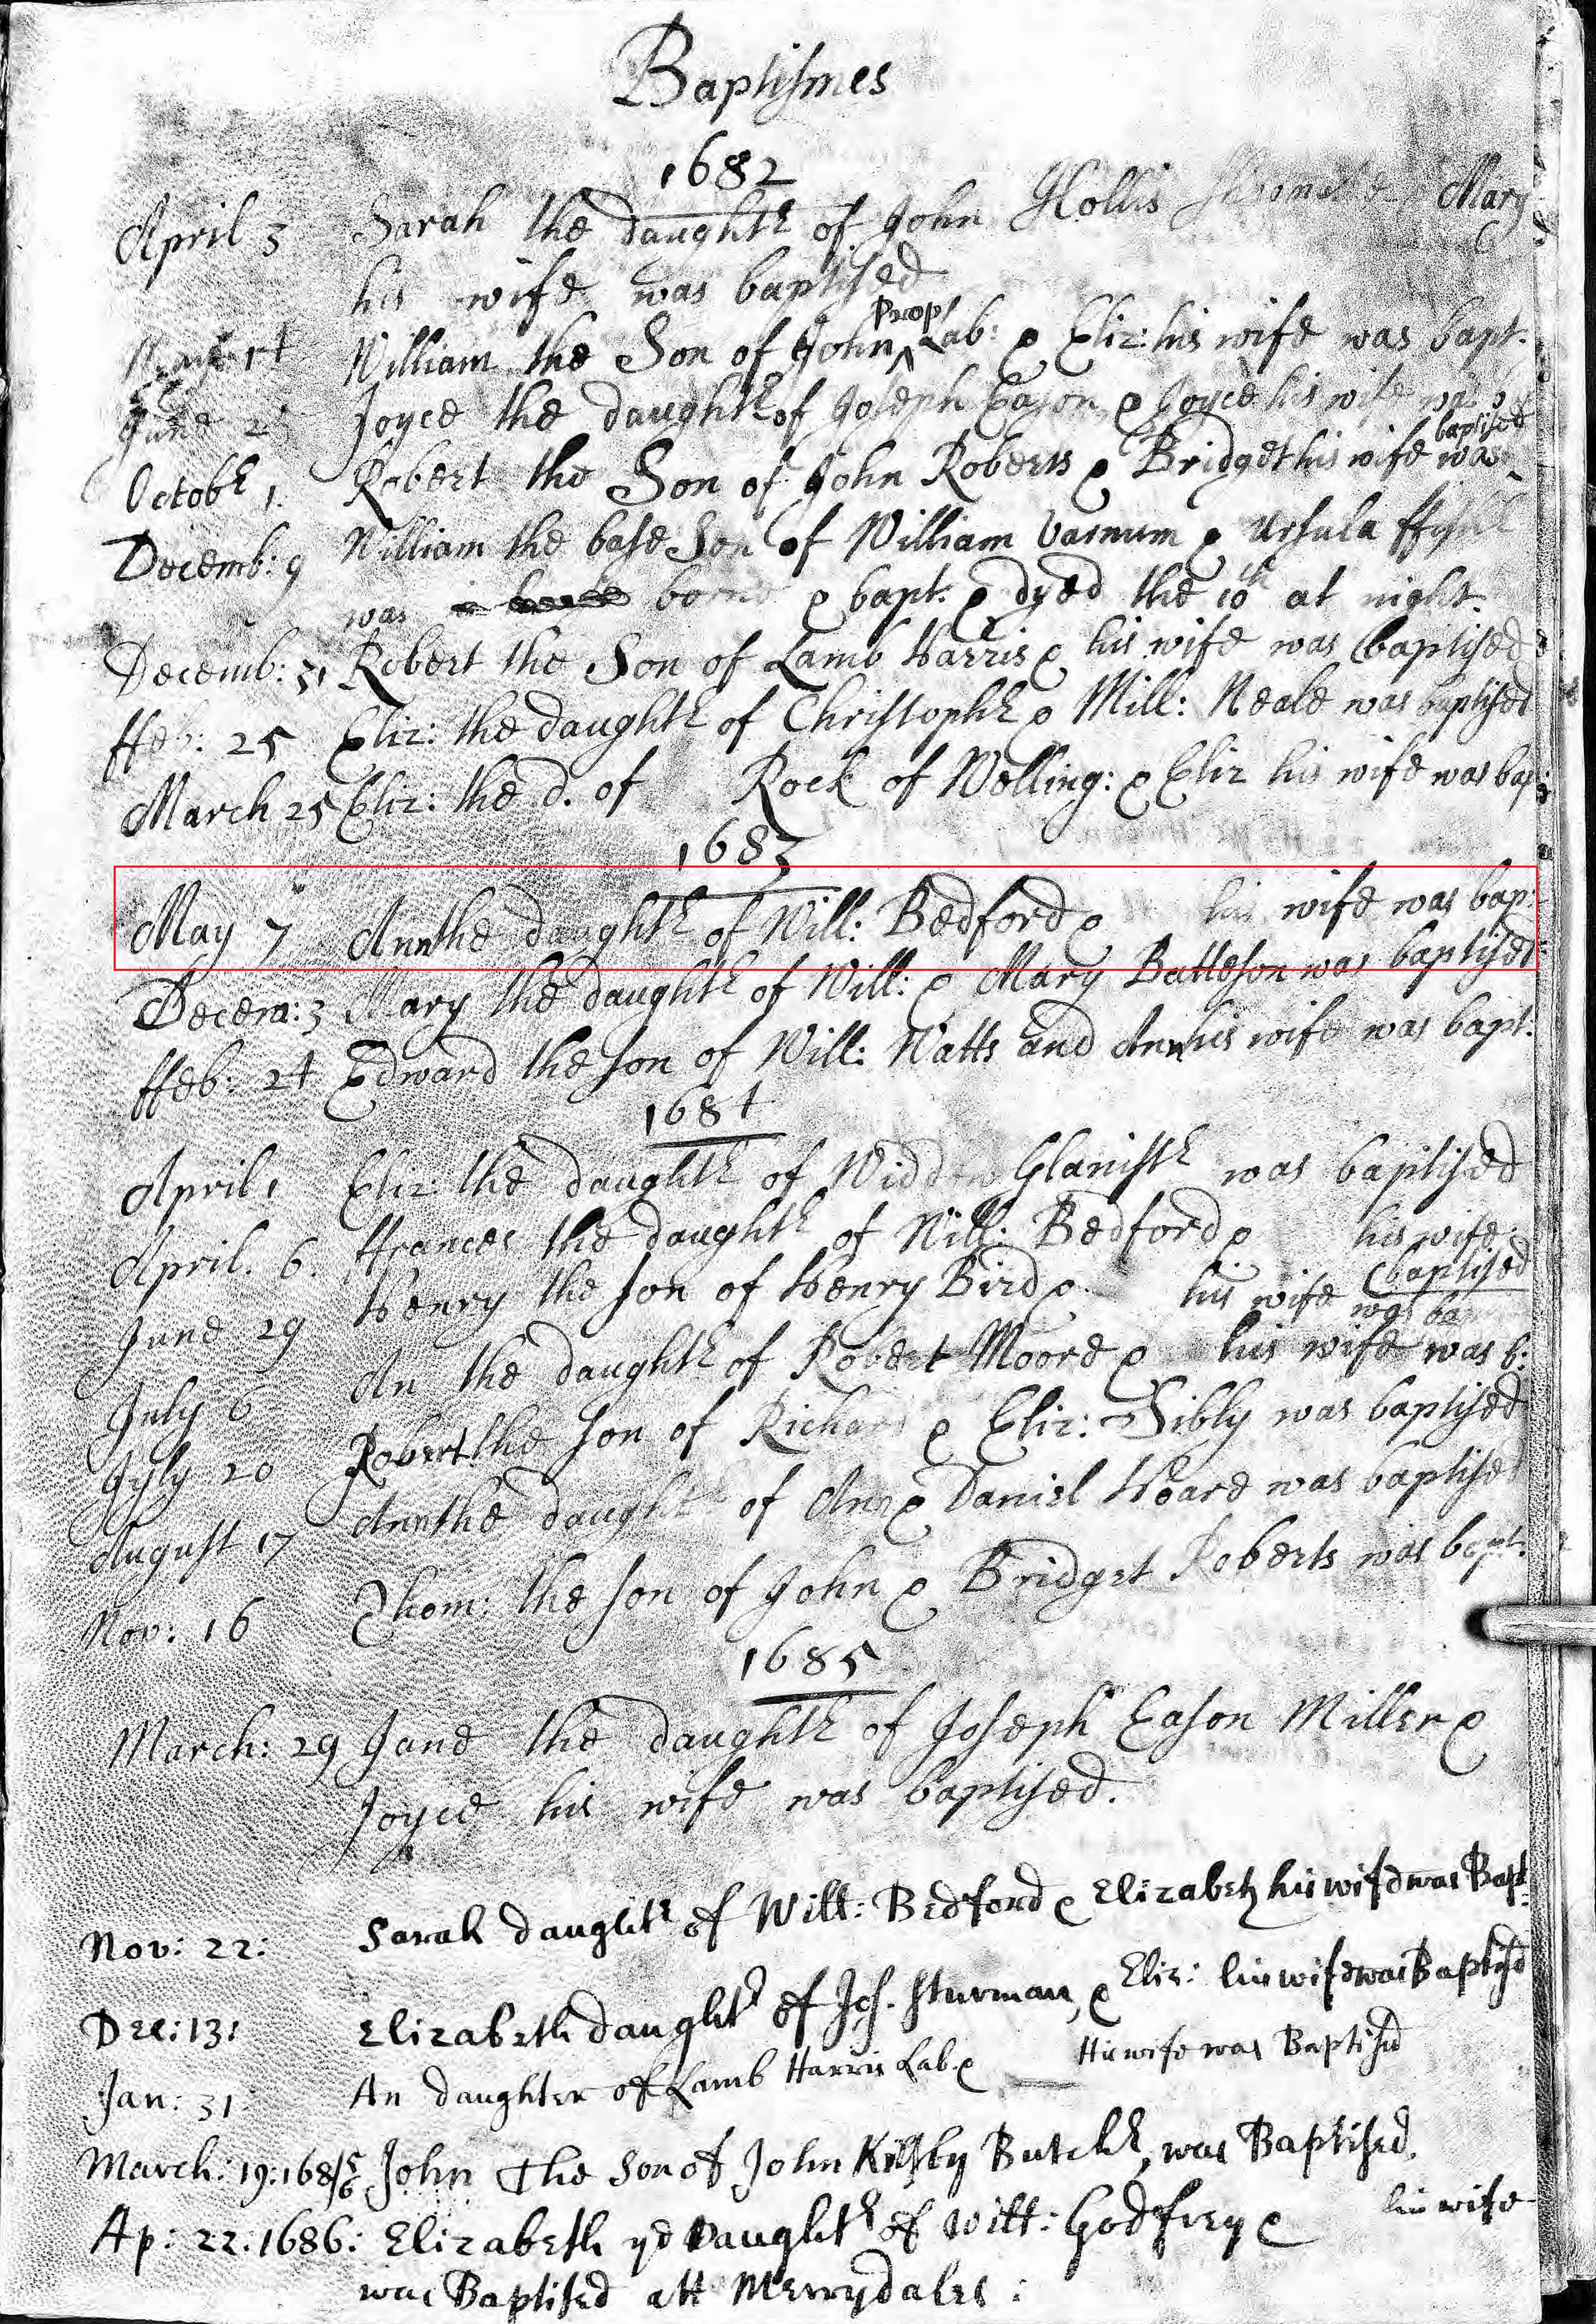 Baptismes
1682
April 3 Sarah the daughtr of John Hollis Mary
his wife was baptised
Prop
William the Son of John ^ Lab: & Eliz: his wife was bapt.
June Joyce the daughtr of Joseph Eason & Joyce his wife was
baptised
Octobr 1. Robert the Son of John Roberts & Bridget his wife was
Decemb: 9 William the base Son of William Varnum & Ursula
was borne & bapt. & dyed the 10th at night.
Decemb: 31 Robert the Son of Lamb Harris & his wife was baptised
ffeb: 25 Eliz: the daughtr of Christophr & Mill: Neale was baptised
March 25 Eliz: the d. of Rock of Welling: & Eliz his wife was bap:
1683
May 7 Ann the daughtr of Will: Bedford & his wife was bap:
Decem: 3 Mary the daughtr of Will: & Mary Batteson was baptised
ffeb: 24 Edward the son of Will: Watts and Ann his wife was bapt:
1684
April 1 Eliz: the daughtr of Widdow Glanistr was baptised
April. 6. ffrances the daughtr of Will: Bedford & his wife
baptised
June 29 Henry the son of Henry Bird & his wife was bap
July 6 An the daughtr of Robert Moore & his wife was b:
Jyly 20 Robert the son of Richard & Eliz: Sibly was baptised
August 17 Ann the daughtr of Ann & Daniel Hoare was baptised
Nov: 16 Thom: the son of John & Bridget Roberts was bapt:
1685
March: 29 Jane the daughtr of Joseph Eason Miller &
Joyce his wife was baptised.
Nov: 22: Sarah daughtr of Will: Bedford & Elizabeth his wife was Bapt:
Dec: 13: Elizabeth daughtr of Jos. Sturman, & Eliz: his wife was Baptisd
Jan: 31: An daughter of Lamb Harris Lab. & his wife was Baptisd
March: 19: 1685/6 John The Son of John Kilsby Butchr, was Baptised.
Ap: 22: 1686: Elizabeth ye Daughtr of Will: Godfrey & his wife
was Baptised att Merrydales: